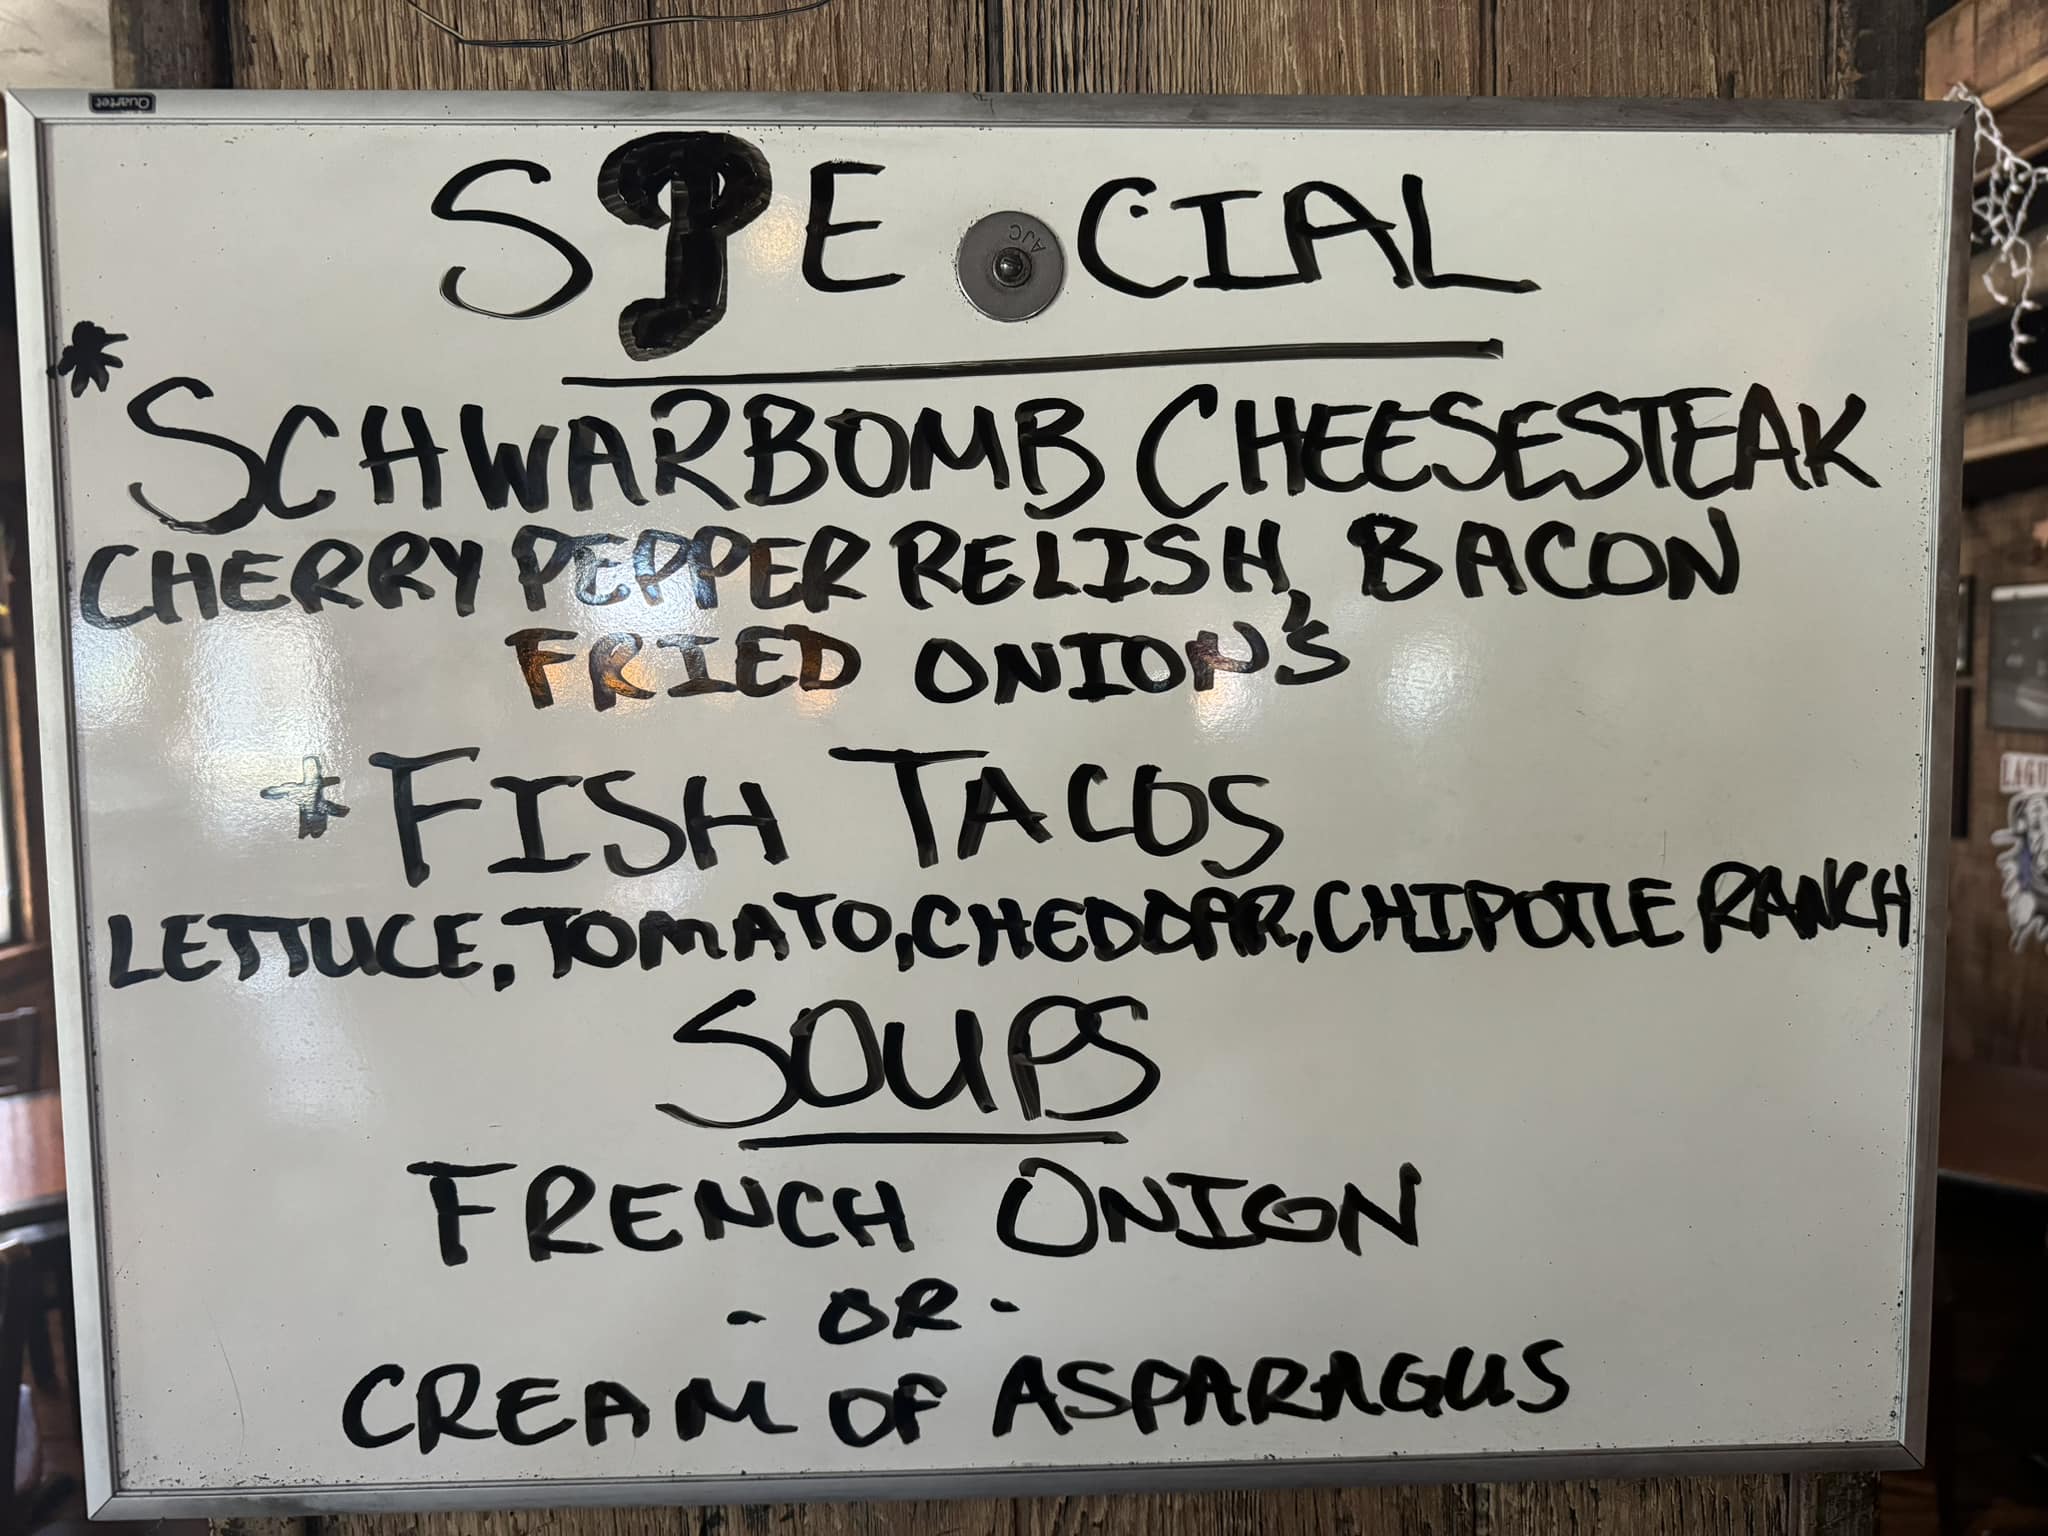 Quartet
SPECIAL
AJC
*SCHWARBOMB CHEESESTEAK
CHERRY PEPPER RELISH, BACON
FRIED ONION'S
*FISH TACOS
LETTUCE, TOMATO, CHEDDAR, CHIPOTLE RANCH
SOUPS
FRENCH ONION
- OR -
CREAM OF ASPARAGUS